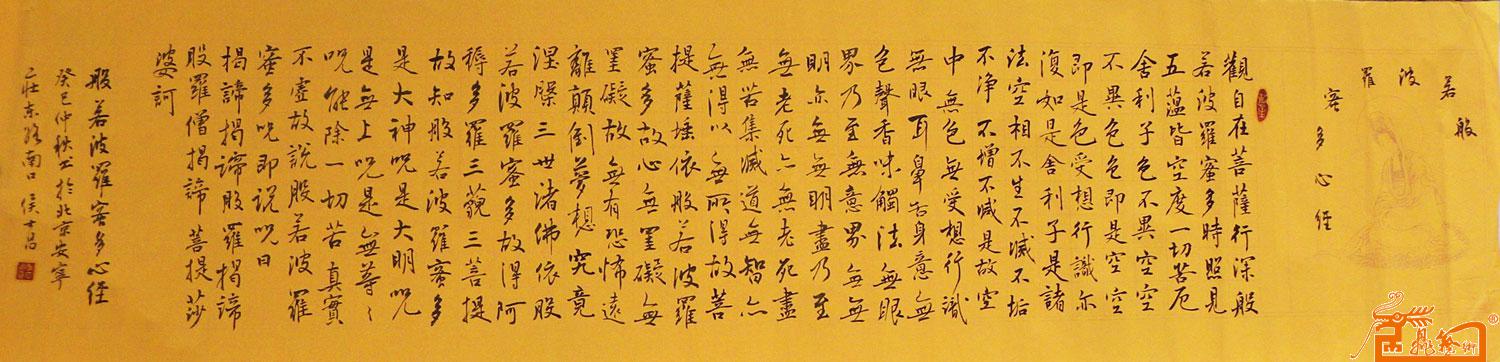 般
若
波
羅
蜜多心经
觀自在菩薩行深般
若波羅蜜多時照見
五蕴皆空度一切苦厄
舍利子色不異空空
不異色色即是空空
即是色受想行識亦
復如是舍利子是諸
法空相不生不滅不垢
不净不增不减是故空
中無色無受想行識
無眼耳鼻舌身意無
色聲香味觸法無眼
界乃至無意界無無
明亦無無明盡乃至
無老死亦無老死盡
無苦集滅道無智亦
無得以無所得故菩
提薩埵依般若波羅
蜜多故心無罣礙無
罣礙故無有恐怖遠
離顛倒夢想究竟
涅槃三世諸佛依般
若波羅蜜多故得阿
耨多羅三藐三菩提
故知般若波羅蜜多
是大神呪是大明呪
是無上呪是無等〻
呪能除一切苦真實
不虛故說般若波羅
蜜多呪即說呪曰
揭諦揭諦般羅揭諦
般羅僧揭諦菩提莎
婆訶
般若波羅蜜多心经
癸巳仲秋书於北京安寧
莊东路南口侯士昌